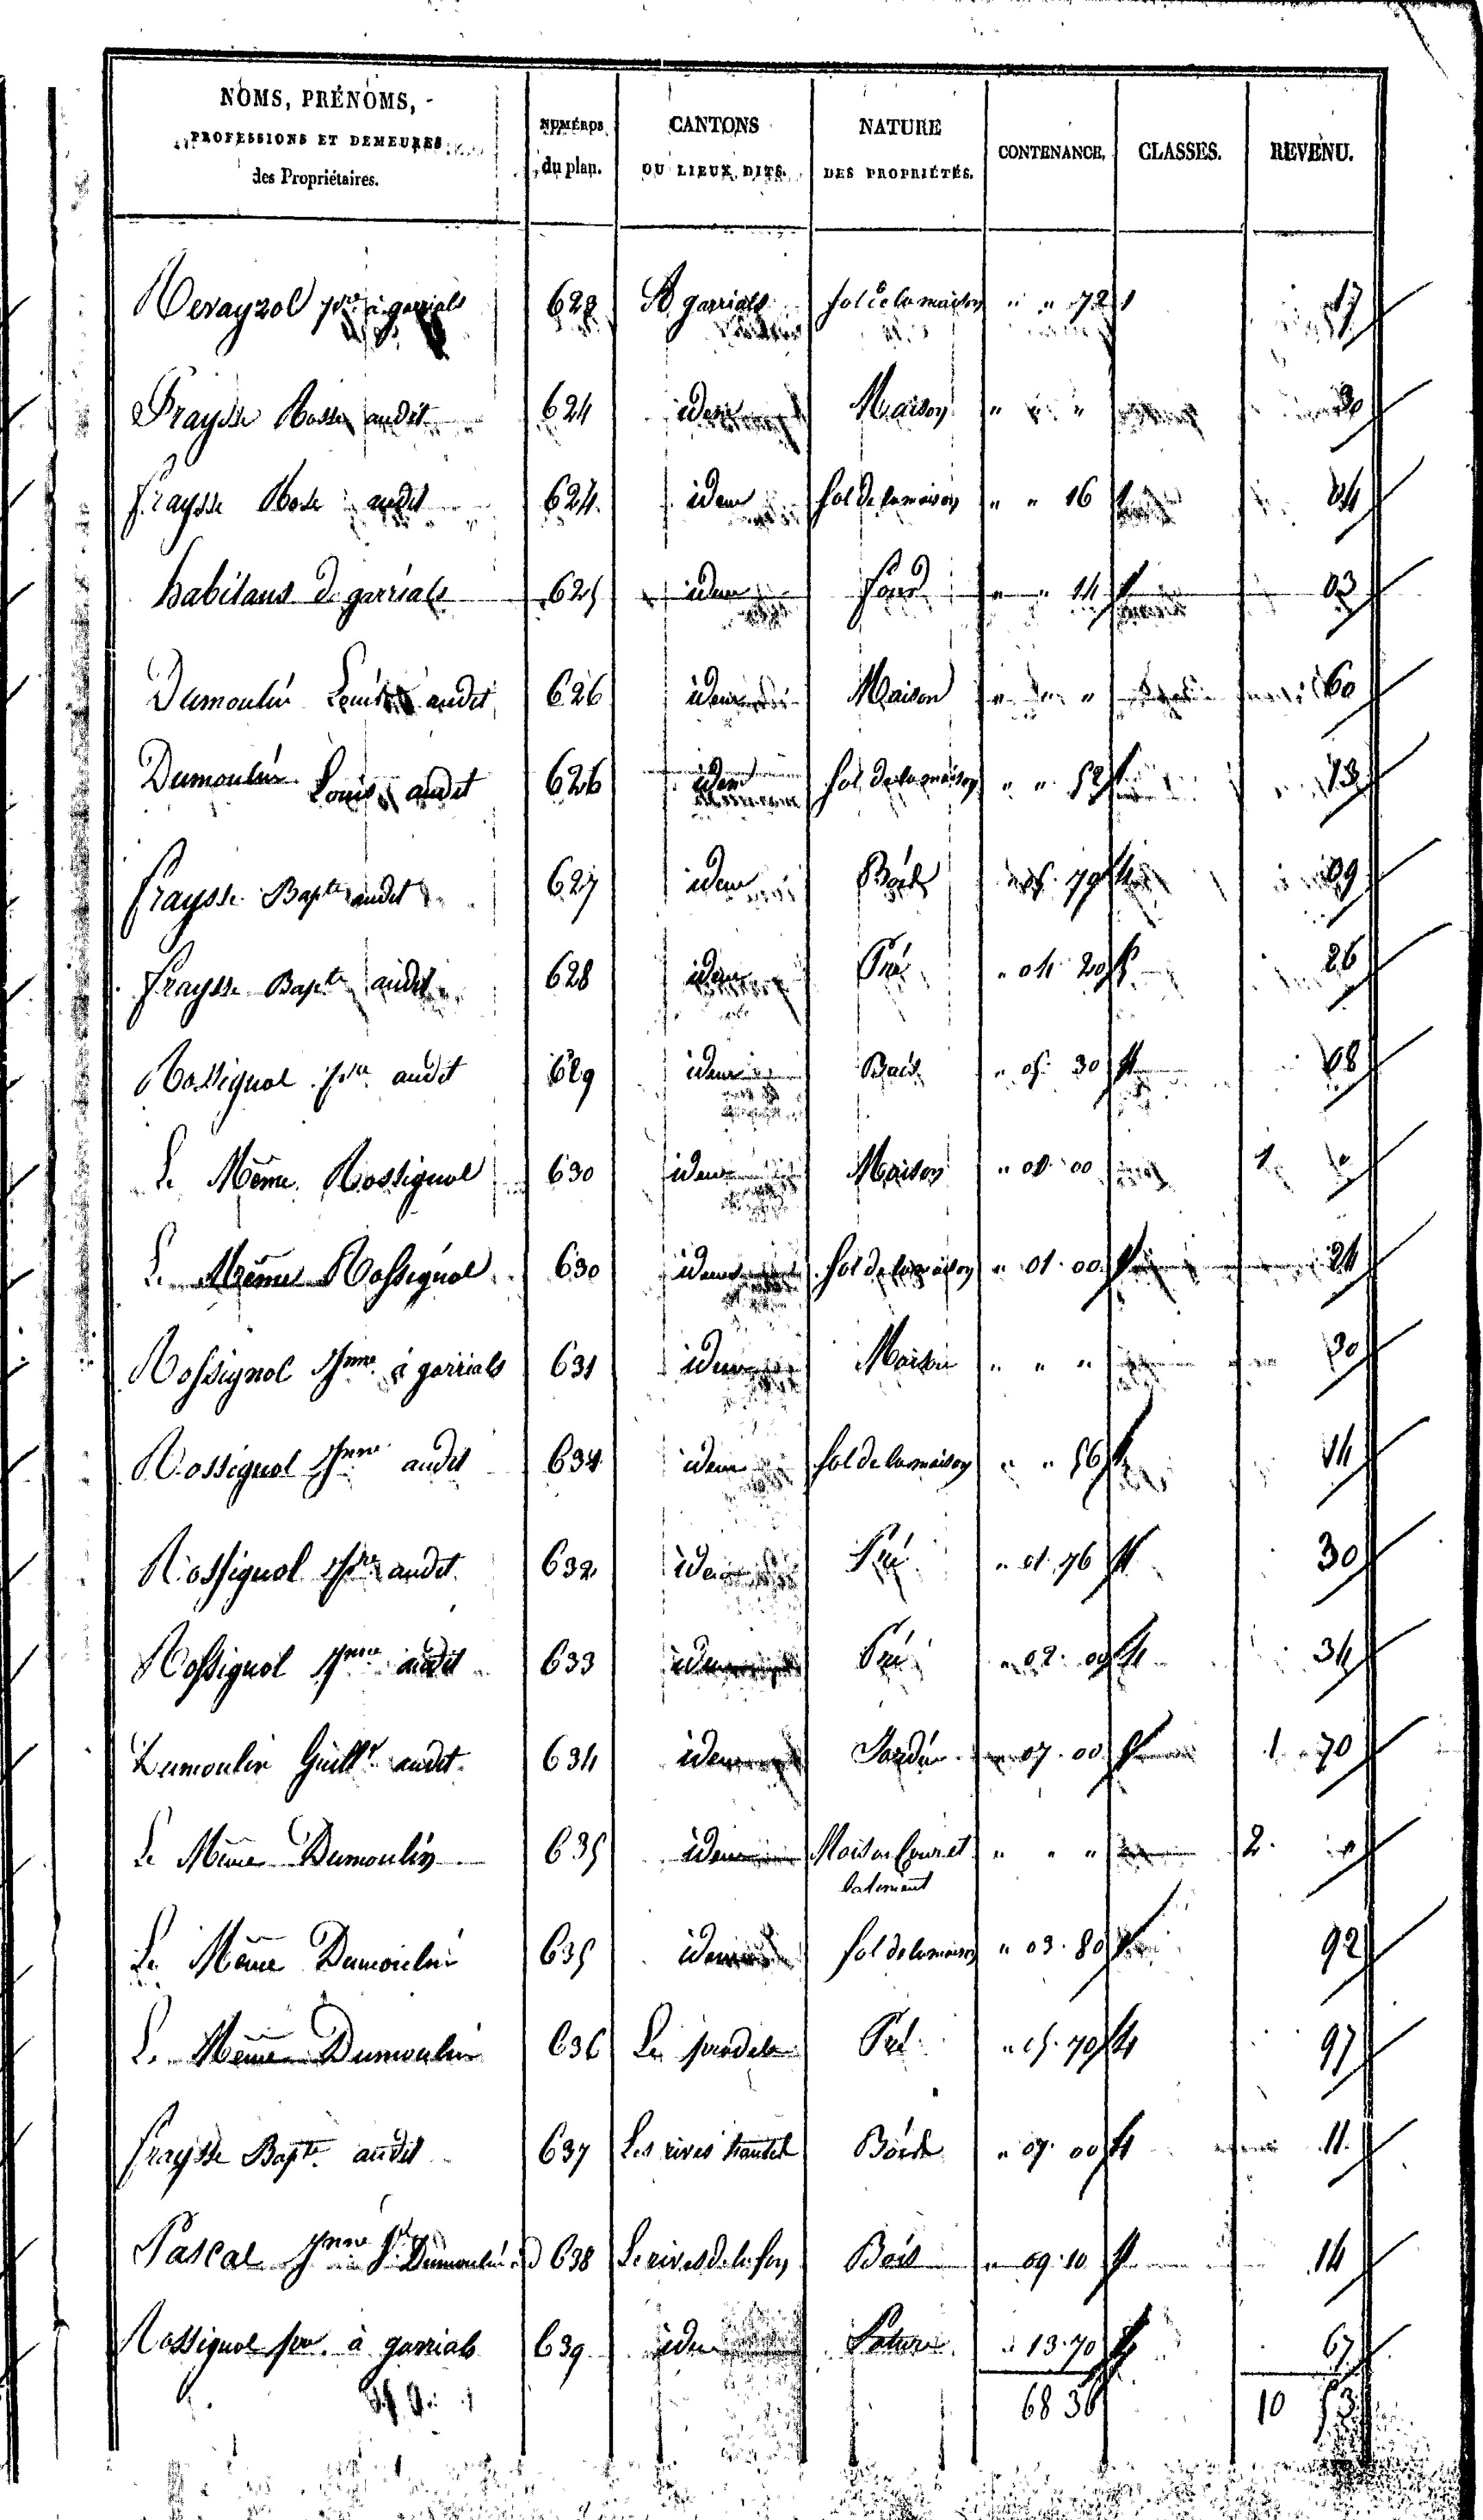 NOMS, PRÉNOMS, NUMÉROS CANTONS NATURE CONTENANCE. CLASSES. REVENU.
PROFESSIONS ET DEMEURES du plan. OU LIEUX DITS. DES PROPRIÉTÉS.
des Propriétaires.
pre à garrials 623 A garrials Sol de la maison " " 72 1 17
Fraysse Rosse audit 624 idem Maison " " " 30
fraysse Rose audit 624 idem Sol de la maison " " 16 1 04
habitans de garrials 625 idem four " " 14 1 03
Dumoulin Louis audit 626 idem Maison " " " 60
Dumoulin Louis audit 626 idem Sol de la maison " " 52 1 13
fraysse Bapte audit 627 idem Bois 4 09
fraysse Bapte audit 628 idem Pré " 04 20 5 26
Rossignol pre audit 629 idem Bois " 05 30 4 08
Le Même Rossignol 630 idem Maison " 00 00 1 "
Le Même Rossignol 630 idem Sol de la maison " 01 00 1 24
Rossignol Jnne à garrials 631 idem Maison " " " 30
Rossignol Jnne audit 631 idem Sol de la maison " " 56 1 14
Rossignol pre audit 632 idem Pré " 01 76 4 30
Rossignol Jnne audit 633 idem Pré " 02 00 4 34
Dumoulin Guille audit 634 idem Jardin " 07 00 1 1 70
Le Même Dumoulin 635 idem Maison Cour et " " " 2 "
batiment
Le Même Dumoulin 635 idem Sol de la maison " 03 80 1 92
Le Même Dumoulin 636 Le Pré " 15 70 4 97
fraysse Bapte audit 637 Les rives hautes Bois " 07 00 4 11
Pascal Jnne Dumoulin 638 Le rives de la fon Bois " 09 10 4 14
Rossignol pre à garrials 639 idem Pature " 13 70 67
68 36 10 53